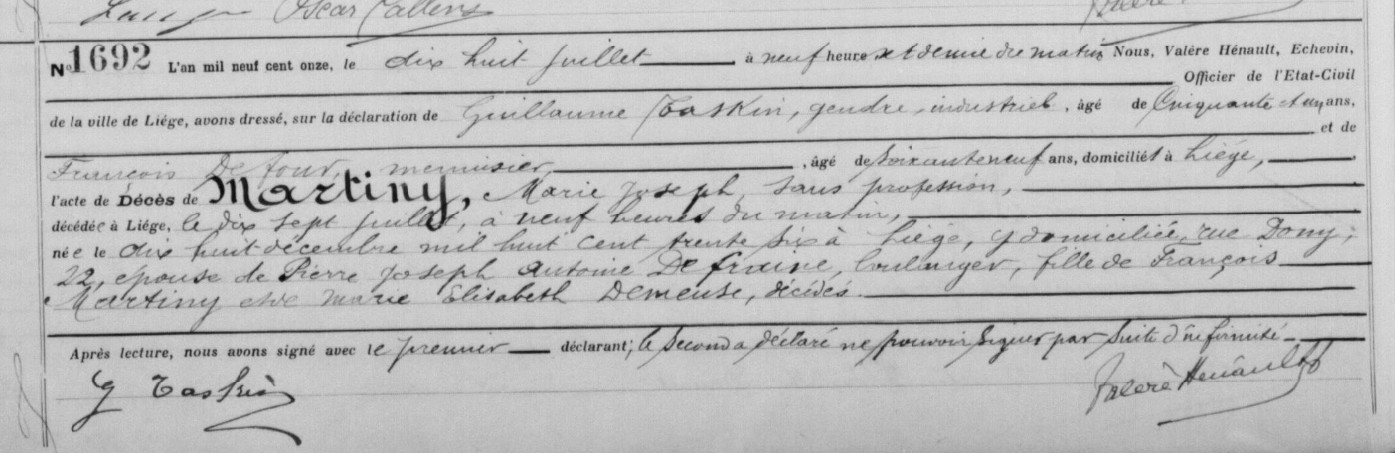 Oscar Callens
No 1692 L'an mil neuf cent onze, le dix huit juillet à neuf heures et demie du matin Nous, Valère Hénault, Echevin,
Officier de l'Etat-Civil
de la ville de Liége, avons dressé, sur la déclaration de Guillaume Taskin, gendre, industriel, âgé de Cinquante et un ans,
et de
François Defour, menuisier, , âgé de soixante neuf ans, domiciliés à Liége,
l'acte de Décès de Martiny, Marie Joseph, sans profession,
décédée à Liége, le dix sept juillet, à neuf heures du matin,
née le dix huit décembre mil huit cent trente six à Liége, y domiciliée, rue Dony,
22, épouse de Pierre Joseph Antoine Defraine, boulanger, fille de François
Martiny et de Marie Elisabeth Demeuse, décédés.
Après lecture, nous avons signé avec le premier déclarant; le second a déclaré ne pouvoir signer par suite d'infirmité
G Taskin
Valère Hénault